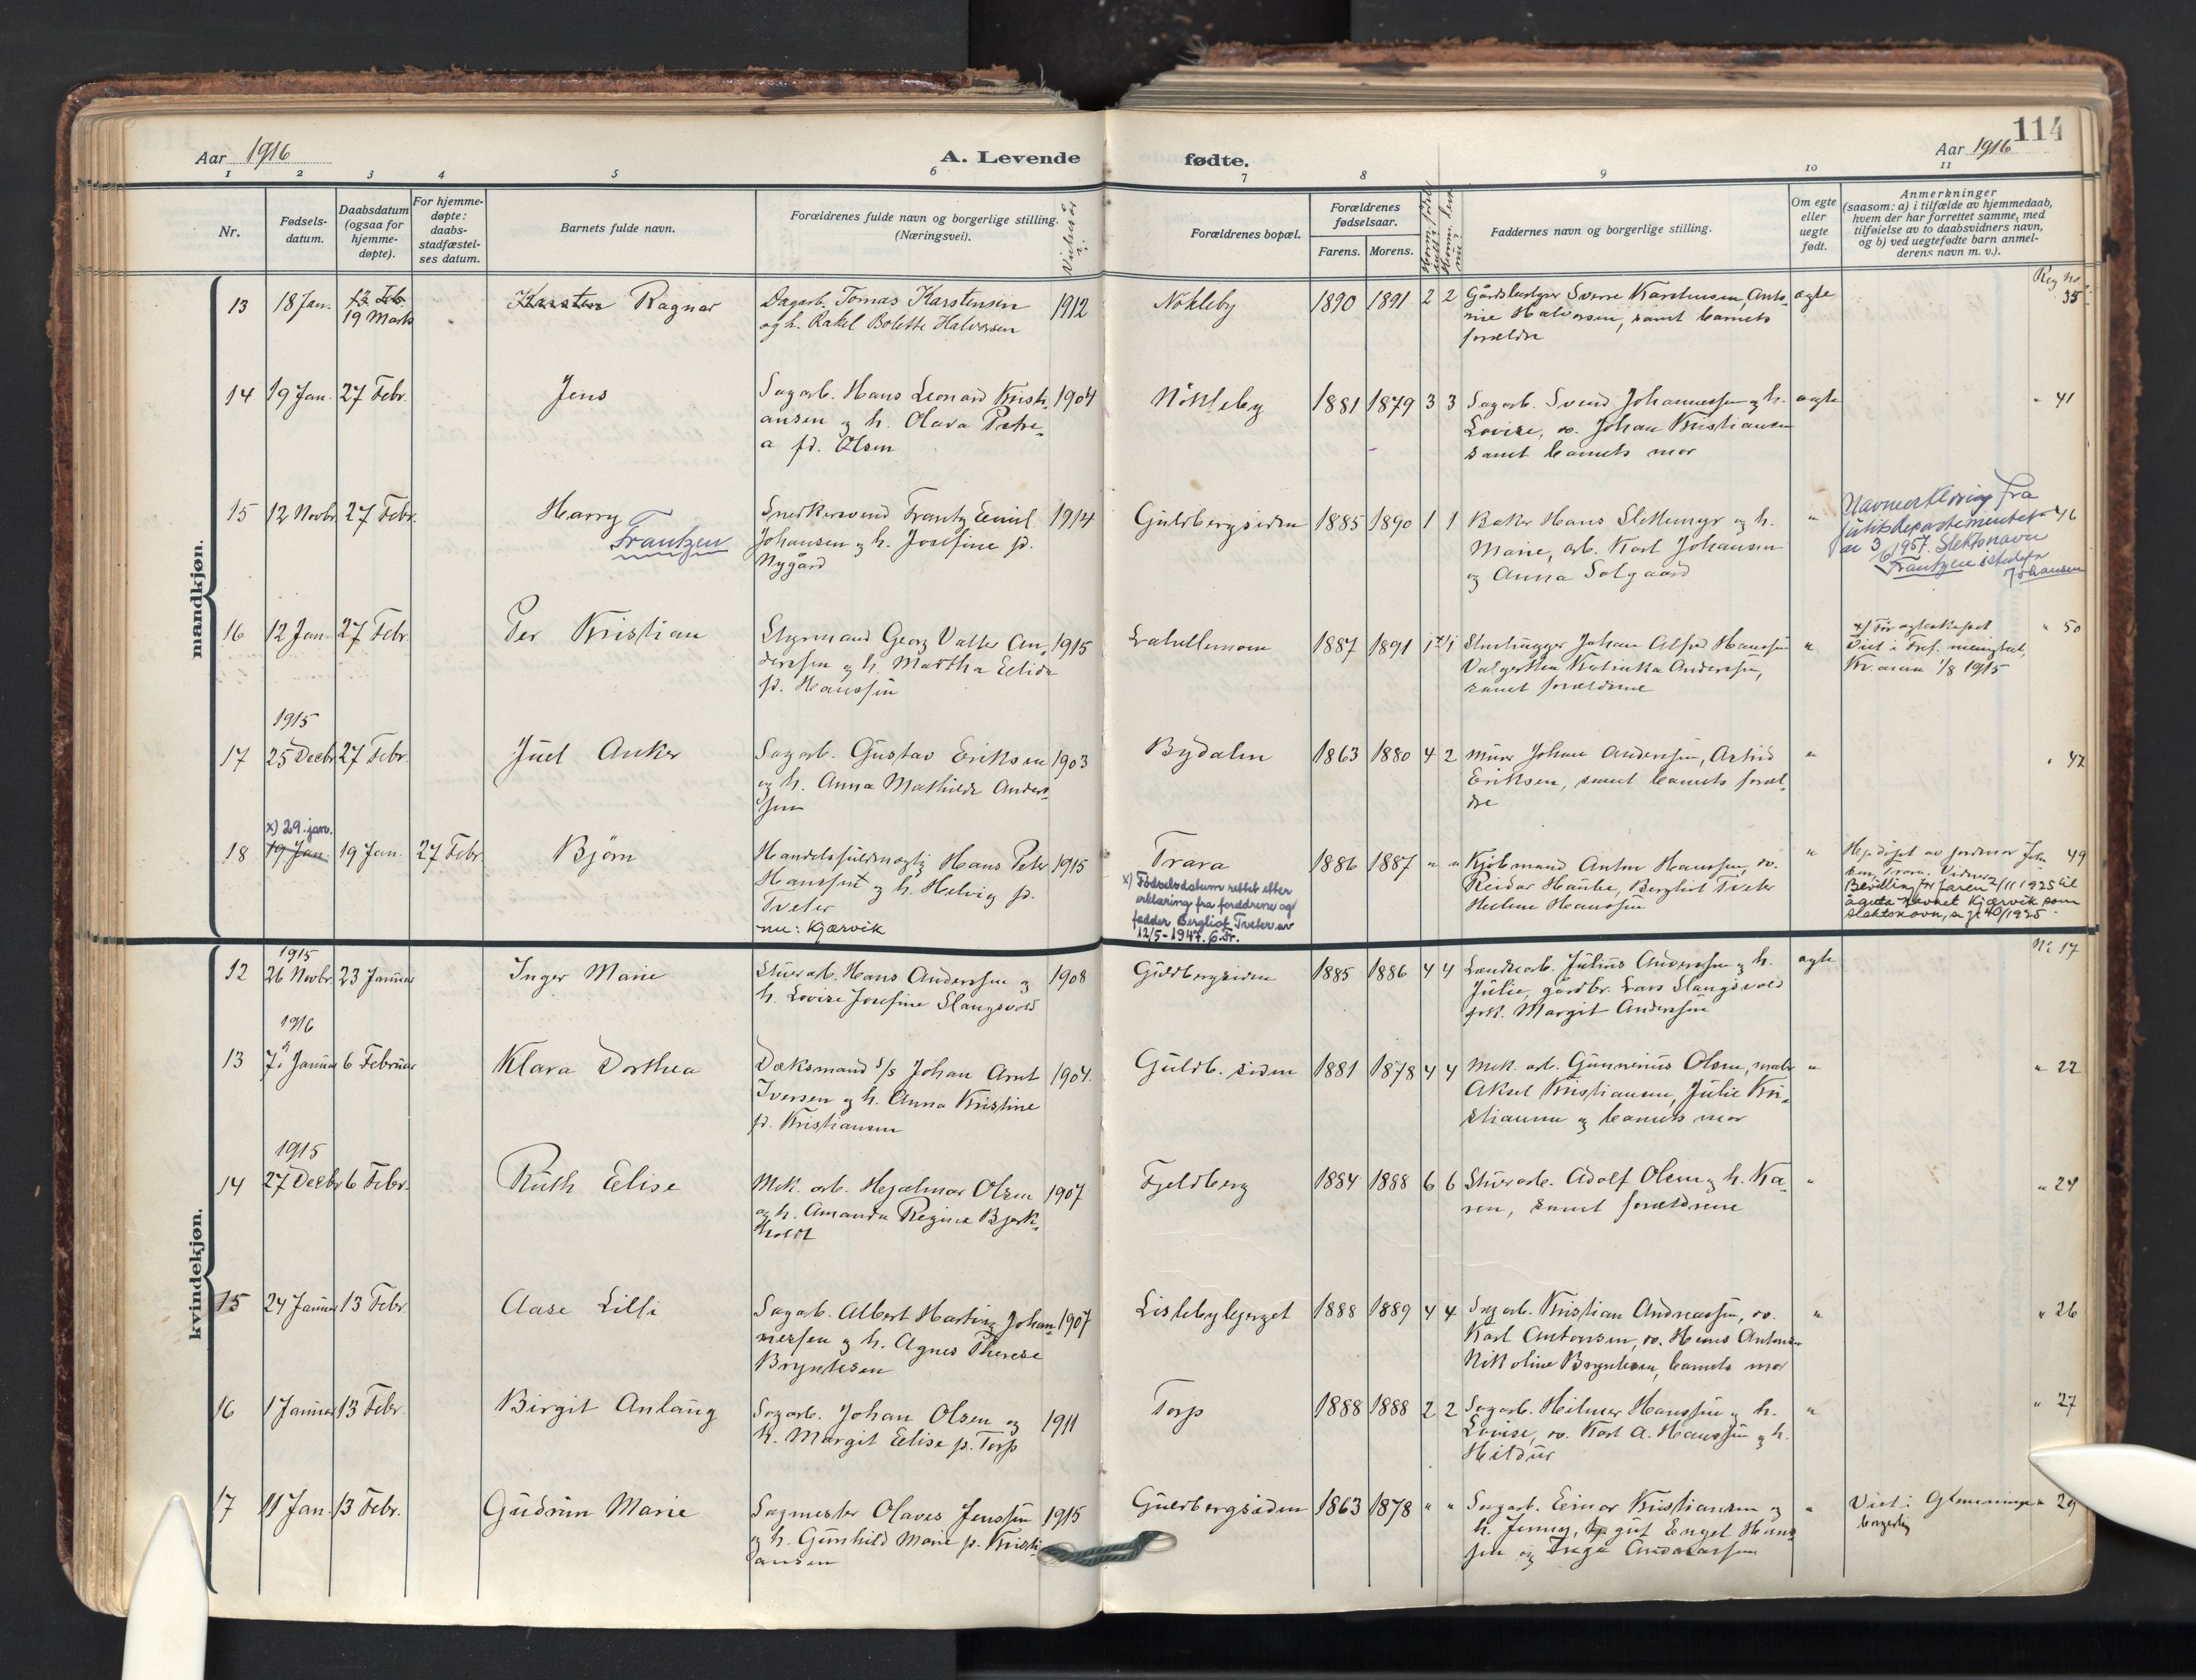 114
Aar 1916
A. Levende
fødte.
Aar 1916
1 2 3 4 5 6 7 8 9 10 11
Nr.
Fødsels-
datum.
Daabsdatum
(ogsaa for
hjemme-
døpte).
For hjemme-
døpte:
daabs-
stadfæstel-
ses datum.
Barnets fulde navn.
Forældrenes fulde navn og borgerlige stilling.
(Næringsvei).
Forældrenes bopæl.
Forældrenes
fødselsaar.
Farens. Morens.
Faddernes navn og borgerlige stilling.
Om egte
eller
uegte
født.
Anmerkninger
(saasom: a) i tilfælde av hjemmedaab,
hvem der har forrettet samme, med
tilføielse av to daabsvidners navn,
og b) ved uegtefødte barn anmel-
derens navn m. v.).
mandkjøn.
13 18 Jan. 13 Feb. 19 Marts Karsten Ragnar
Dagarb. Tomas Karstensen
og h. Rakel Bolette Halvorsen
1912 Nökleby 1890 1891 2 2
Sverre Karstensen, Anto-
nie Halvorsen, samt barnets
forældre
egte
Reg no.
35
14 19 Jan. 27 Febr. Jens
Sagarb. Hans Leonard Kristi-
ansen og h. Olava Petre-
a fd. Olsen
1904 Nökleby 1881 1879 3 3
Sagarb. Svend Johannessen og h.
Lovise, Johan Kristiansen
samt barnets mor
egte
" 41
15 12 Novbr. 27 Febr. Harry
Frantzen
Snekkersvend Frantz Emil
Johansen og h. Josefine fd.
Nygård
1914 Guldbergsiden 1885 1890 1 1
Baker Hans Slettemyr og h.
Marie, arb. Karl Johansen
og Anna Solgaard
"
Navneerklæring fra
justitsdepartementet
av 3/6 1957. Slektsnavn
Frantzen istedefor
Johansen
46
16 12 Jan. 27 Febr. Per Kristian
Styrmand Georg Valter An-
derssen og h. Martha Elida
fd. Hanssen
1915 1887 1891 1 x) 1
Stenhugger Johan Alfred Hanssen
Katinka Anderssen,
samt forældrene
"
x) Før egteskapet
Viet i Fref. menighet,
Kr.ania 1/8 1915
" 50
1915
17 25 Decbr. 27 Febr. Juel Anker
Sagarb. Gustav Eriksen
og h. Anna Mathilde Anders-
sen
1903 Bydalen 1863 1880 4 2
Murer Johan Anderssen, Astrid
Eriksen, samt barnets foræl-
dre
"
" 47
x) 29. jan.
18 19 Jan. 19 Jan. 27 Febr. Bjørn
Handelsfuldmægtig Hans Peter
Hanssen og h. Helvig fd.
Tveter
nu: Kjærvik
1915 Trara
x) Fødselsdatum rettet etter
erklæring fra foreldrene og
fadder Bergliot Tveter av
12/5 - 1947. G. Fr.
1886 1887 " "
Kjøbmand Anton Hanssen,
Reidar Bergliot Tveter
Helene Hanssen
"
Hj.døpt av jordmor
Trara. Vidner
Bevilling for faren 2/11 1925 til
å anta navnet Kjærvik som
slektsnavn, 40/1925.
49
kvindekjøn.
1915
12 26 Novbr. 23 Januar Inger Marie
Stuerarb. Hans Anderssen og
h. Lovise Josefine Slangsvold
1908 Guldbergsiden 1885 1886 4 4
Julius Anderssen og h.
Julie, gårdbr. Lars Slangsvold
frk. Margit Anderssen
egte
Nr 17
1916
13 7 Januar 6 Februar Klara Dorthea
Dæksmand s/s Johan Arnt
Iversen og h. Anna Kristine
fd. Kristiansen
1904. Guldb. siden 1881 1878 4 4
Mek. arb. Gunnerius Olsen,
Aksel Kristiansen, Julie Kri-
stiansen og barnets mor
"
" 22
1915
14 27 Decbr. 6 Febr. Ruth Elise
Mek. arb. Hjalmar Olsen
og h. Amanda Regine Bjerk-
holdt
1907 Fjeldberg 1884 1888 6 6
Stuerarb. Adolf Olsen og h. Ka-
ren, samt forældrene
"
" 24
15 24 Januar 13 Febr. Aase Lilli
Sagarb. Albert Harting Johan-
nessen og h. Agnes Therese
Bryntesen
1907 Lislebybjerget 1888 1889 4 4
Sagarb. Kristian Andreassen,
Karl Antonsen, Hans Antonsen
Nikoline Bryntesen, barnets mor
"
" 26
16 1 Januar 13 Febr. Birgit Anlaug
Sagarb. Johan Olsen og
h. Margit Elise fd. Torp
1911 Torp 1888 1888 2 2
Sagarb. Hilmer Hanssen og h.
Lovise, Karl A. Hanssen og h.
Hildur
"
" 27
17 11 Jan. 13 Febr. Gudrun Marie
Sagmester Olaves Jenssen
og h. Gunhild Marie fd. Kristi-
ansen
1915 Guldbergsiden 1863 1878 " "
Sagarb. Einar Kristiansen og
h. Jenny, gut Engel Hans-
sen og Inga Andreassen
"
Viet i Glemminge
borgerlig
" 29